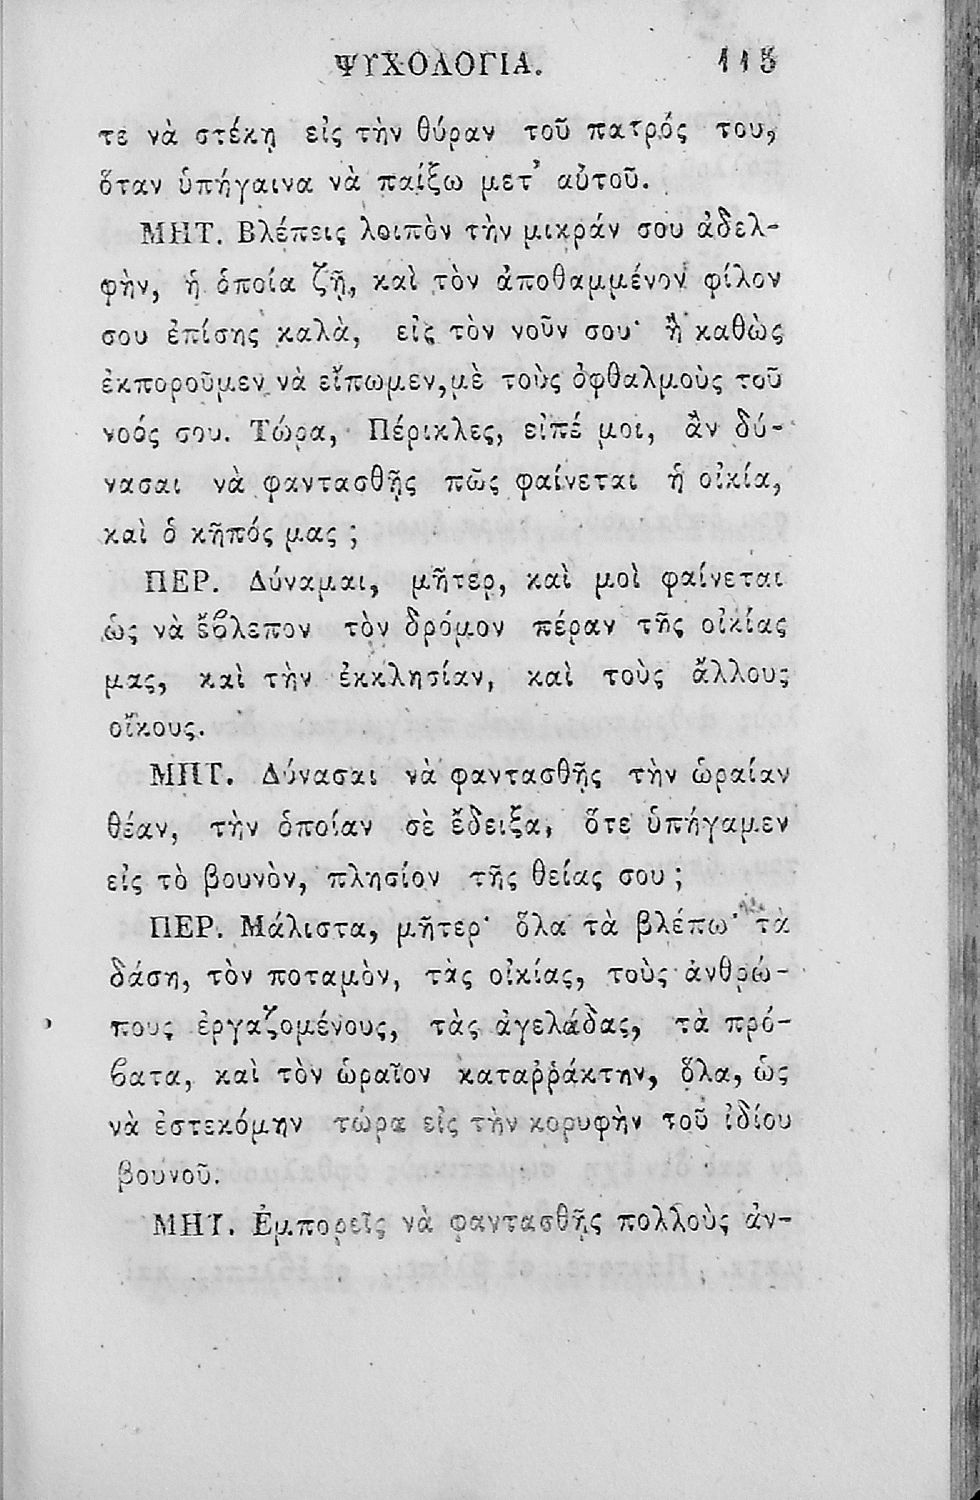 ΨΥΧΟΛΟΓΙΑ. 115
τε νὰ στέκῃ εἰς τὴν θύραν τοῦ πατρός του,
ὅταν ὑπήγαινα νὰ παίξω μετ’ αὐτοῦ.
ΜΗΤ. Βλέπεις λοιπὸν τὴν μικράν σου ἀδελ-
φὴν, ἡ ὁποία ζῇ, καὶ τὸν ἀποθαμμένον φίλον
σου ἐπίσης καλὰ, εἰς τὸν νοῦν σου· ἢ καθὼς
ἐκποροῦμεν νὰ εἴπωμεν, μὲ τοὺς ὀφθαλμοὺς τοῦ
νοός σου. Τώρα, Πέρικλες, εἰπέ μοι, ἂν δύ-
νασαι νὰ φαντασθῇς πῶς φαίνεται ἡ οἰκία,
καὶ ὁ κῆπός μας ;
ΠΕΡ. Δύναμαι, μῆτερ, καὶ μοὶ φαίνεται
ὡς νὰ ἔϐλεπον τὸν δρόμον πέραν τῆς οἰκίας
μας, καὶ τὴν ἐκκλησίαν, καὶ τοὺς ἄλλους
οἴκους.
ΜΗΤ. Δύνασαι νὰ φαντασθῇς τὴν ὡραίαν
θέαν, τὴν ὁποίαν σὲ ἔδειξα, ὅτε ὑπήγαμεν
εἰς τὸ βουνὸν, πλησίον τῆς θείας σου ;
ΠΕΡ. Μάλιστα, μῆτερ· ὅλα τὰ βλέπω· τὰ
δάση, τὸν ποταμὸν, τὰς οἰκίας, τοὺς ἀνθρώ-
πους ἐργαζομένους, τὰς ἀγελάδας, τὰ πρό-
ϐατα, καὶ τὸν ὡραῖον καταῤῥάκτην, ὅλα, ὡς
νὰ ἐστεκόμην τώρα εἰς τὴν κορυφὴν τοῦ ἰδίου
βουνοῦ.
ΜΗΤ. Ἐμπορεῖς νὰ φαντασθῇς πολλοὺς ἀν-